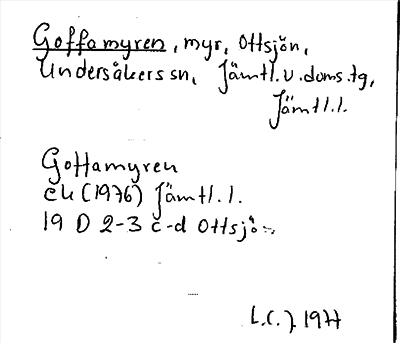 Goffamyren, myr, Ottsjön,
Undersåkers sn, Jämtl.v.doms.tg,
Jämtl.l.
Goffamyren
ek (1976) Jämtl.l.
19 D 2-3 c-d Ottsjö-
L.C.J. 1977